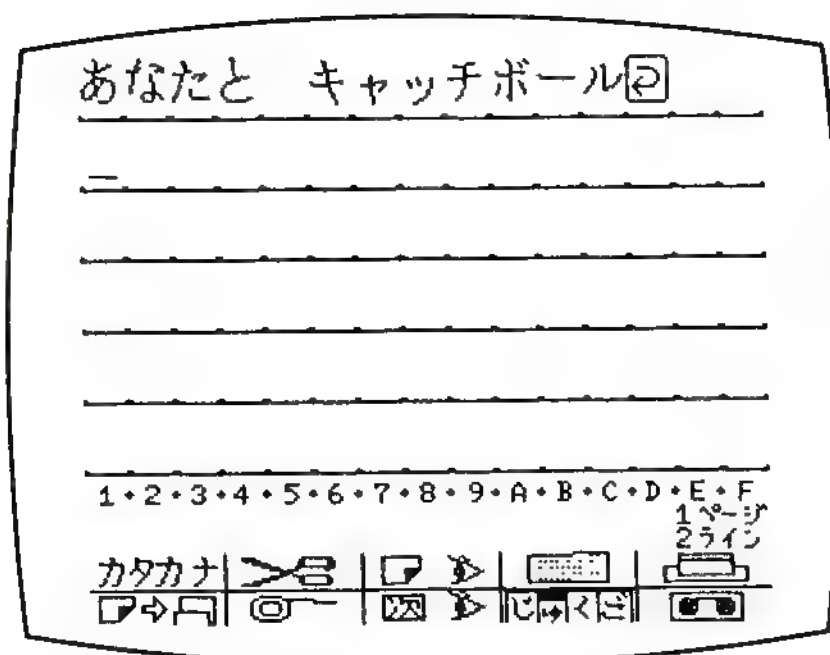 あなたと キャッチボール
1・2・3・4・5・6・7・8・9・A・B・C・D・E・F
1ページ
2ライン
カタカナ
次 じゅくご